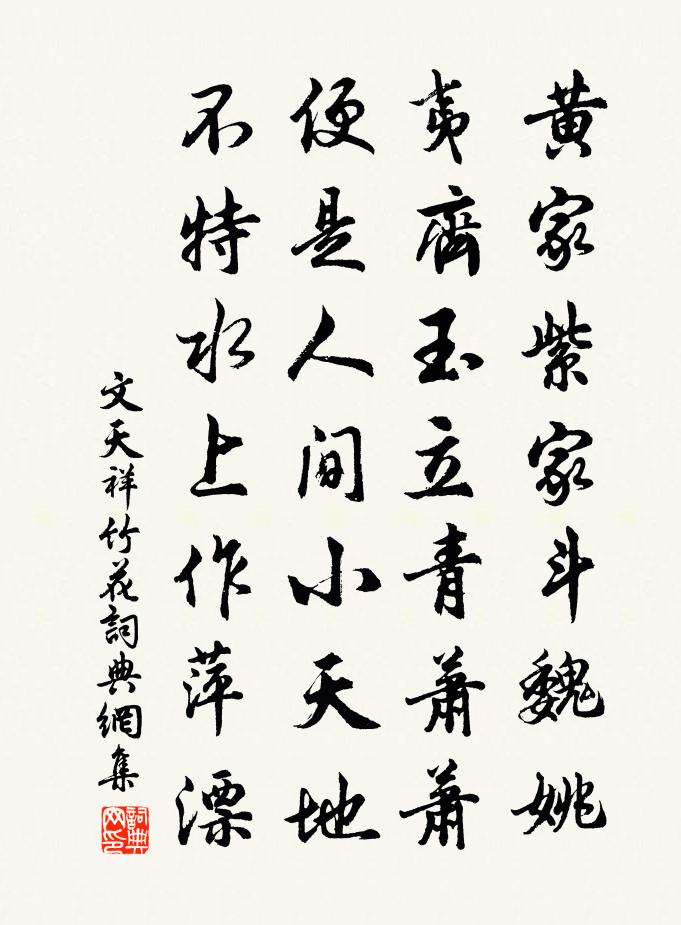 黄家紫家斗魏姚
夷齊玉立青蕭蕭
便是人间小天地
不特水上作萍漂
文天祥竹花詞典網集
詞典网印